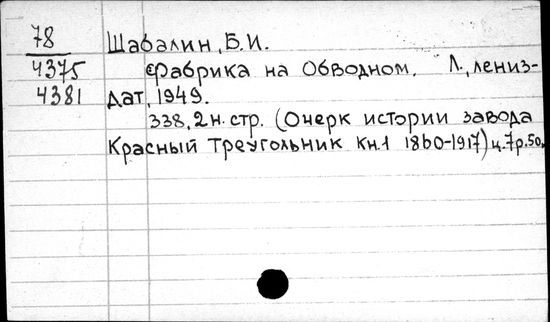 78 Шабалин, Б.И.
4375 Фабрика на Обводном. Л., лениз-
4381 дат, 1949.
338, 2 н. стр. (Очерк истории завода
Красный Треугольник Кн.1 1860-1917) ц. 7р.50.